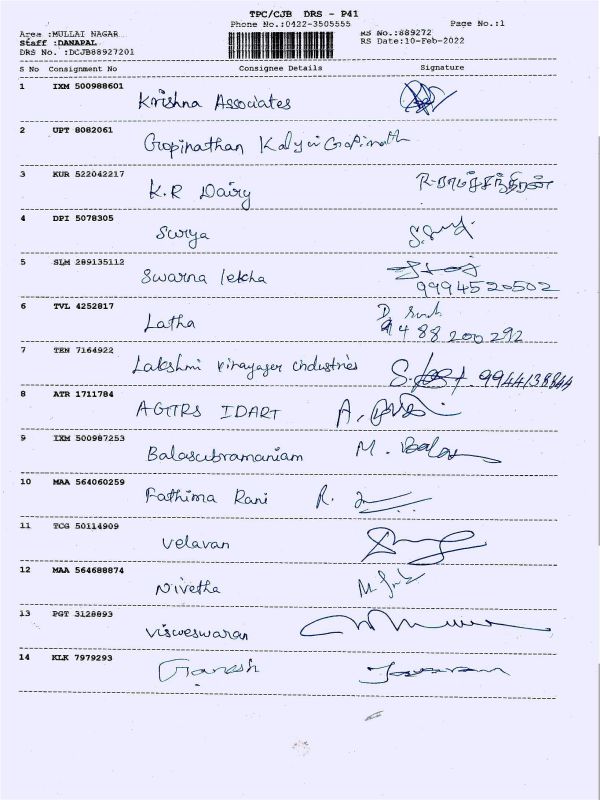 TPC/CJB DRS - P41
Phone No.:0422-3505555 Page No.:1
Area :MULLAI NAGAR RS No.:889272
Staff :DANAPAL RS Date:10-Feb-2022
DRS No. :DCJB88927201
S No Consignment No Consignee Details Signature
1 IXM 500988601 Krishna Associates
2 UPT 8082061 Gopinathan
3 KUR 522042217 K.R Dairy R-ராமச்சந்திரன்
4 DPI 5078305 Surya
5 SLM 289135112 Swarna lekha
9994520502
6 TVL 4252817 Latha
9488200292
7 TEN 7164922 Lakshmi Vinayager industries 9944138844
8 ATR 1711784 AGTTRS IDART
9 IXM 500987253 Balasubramaniam M. Bala
10 MAA 564060259 Fathima Rani
11 TCG 50114909 Velavan
12 MAA 564688874 Nivetha
13 PGT 3128893 Visweswaran
14 KLK 7979293 Ganesh